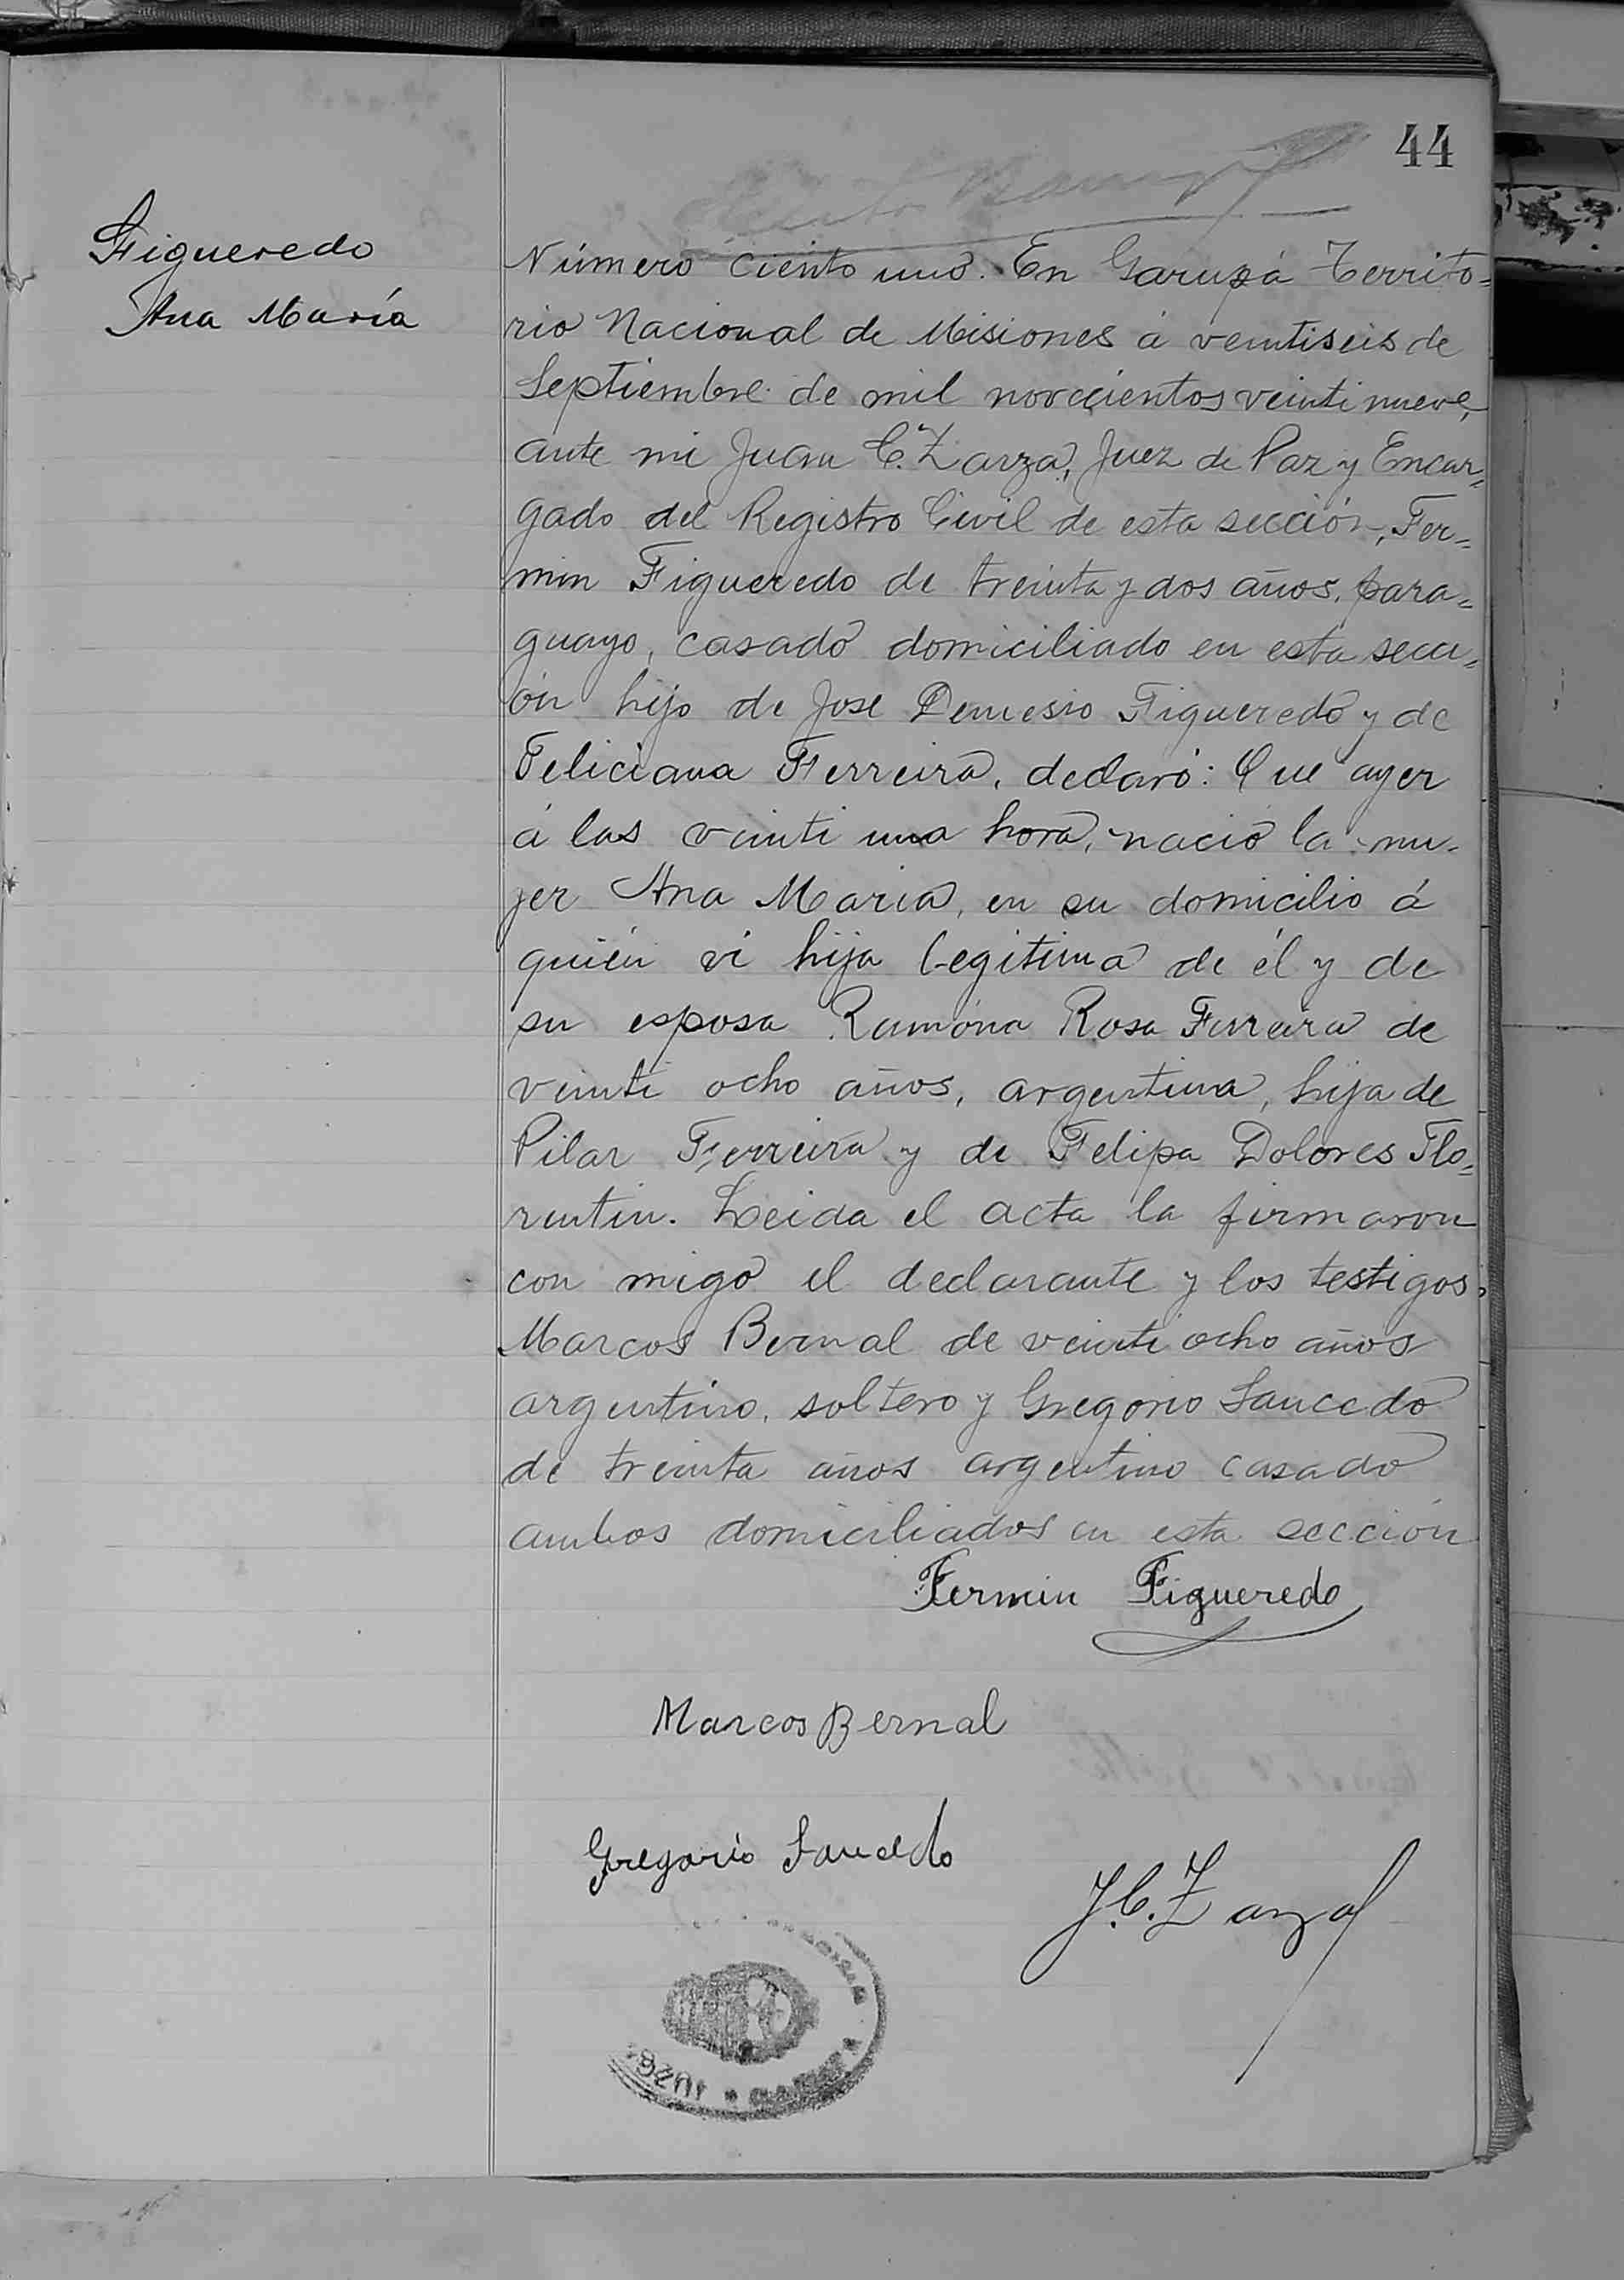 44
Figueredo
Ana María
Número ciento uno. En Garupá Territo=
rio Nacional de Misiones á veintiseis de
Septiembre de mil novecientos veintinueve,
ante mi Juan C. Zarza, Juez de Paz y Encar=
gado del Registro Civil de esta sección, Fer=
min Figueredo de treinta y dos años, para=
guayo, casado domiciliado en esta secci=
ón hijo de Jose Demesio Figueredo y de
Feliciana Ferreira, declaró: Que ayer
á las veinti una hora, nació la mu-
jer Ana Maria, en su domicilio á
quién vi hija legitima de él y de
su esposa Ramóna Rosa Ferreira de
veinti ocho años, argentina, hija de
Pilar Ferreira y de Felipa Dolores Flo=
rentin. Leida el acta la firmaron
con migo el declarante y los testigos
Marcos Bernal de veinti ocho años
argentino, soltero y Gregorio Saucedo
de treinta años argentino casado
ambos domiciliados en esta sección
Fermin Figueredo
Marcos Bernal
Gregorio Saucedo
J. C. Zarza